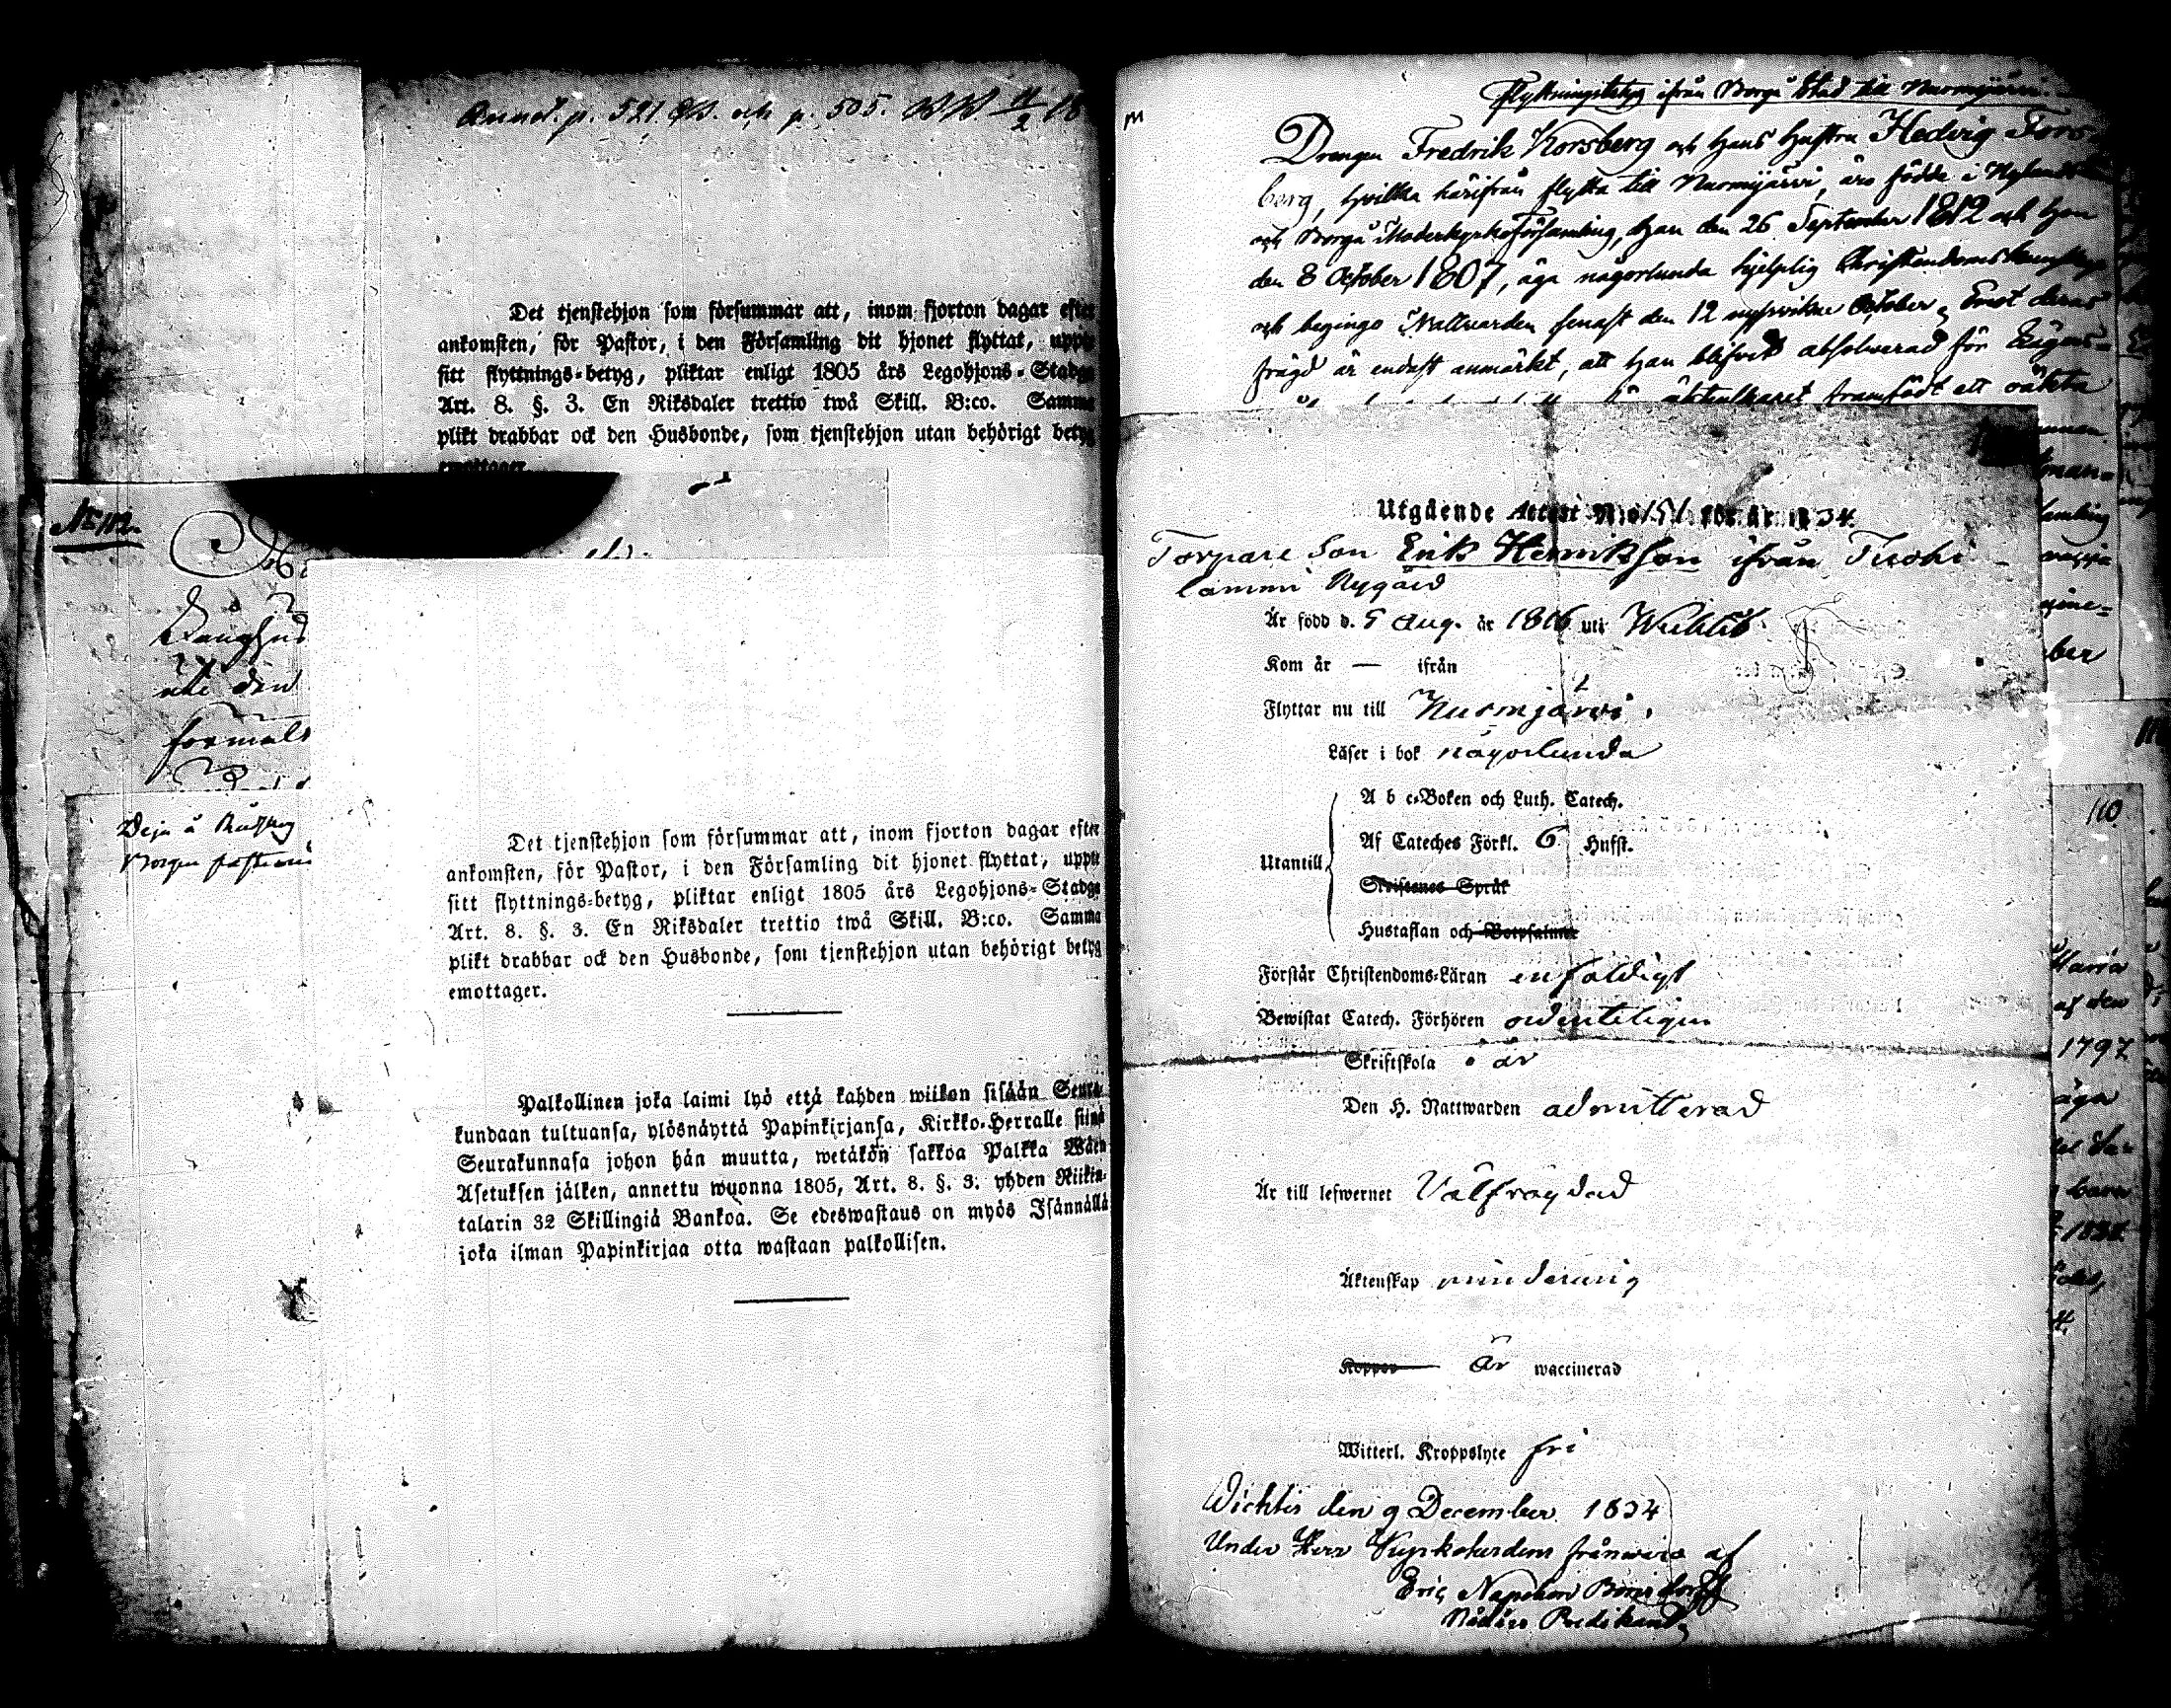 Annot. p. 521 och p. 505.
Det tjenstehjon som försummar att, inom fjorton dagar efter
ankomsten, för Pastor, i den Församling dit hjonet flyttat, uppte
sitt flyttnings-betyg, pliktar enligt 1805 års Legohjons-Stadga
Art. 8. §. 3. En Riksdaler trettio twå Skill. B:co. Samma
plikt drabbar ock den Husbonde, som tjenstehjon utan behörigt betyg
emottager
No 112.
uti den
Det tjenstehjon som försummar att, inom fjorton dagar efter
ankomsten, för Pastor, i den Församling dit hjonet flyttat, uppte
sitt flyttnings-betyg, pliktar enligt 1805 års Legohjons-Stadga
Art. 8. §. 3. En Riksdaler trettio twå Skill. B:co. Samma
plikt drabbar ock den Husbonde, som tjenstehjon utan behörigt betyg
emottager.
Palkollinen joka laimi lyö että kahden wiikon sisään Seura-
kundaan tultuansa, ylösnäyttä Papinkirjansa, Kirkko-Herralle siinä
Seurakunnasa johon hän muutta, wetäkön sakkoa Palkka Wäen
Asetuksen jälken, annettu wuonna 1805, Art. 8. §. 3. yhden Riikin-
talarin 32 Skillingiä Bankoa. Se edeswastaus on myös Isännällä
joka ilman Papinkirjaa otta wastaan palkollisen.
Flyttningsbetyg ifrån Borgå Stad till Nurmijärvi.
Drengen Fredrik Korsberg och hans hustru Hedvig Fors-
berg, hvilka härifrån flytta till Nurmijärvi, äro födde i Nylands
och Borgå Moderkyrkoförsamling, han den 26 September 1812 och hon
den 8 October 1807, äga någorlunda hjelplig Christendomskunskap
och begingo Nattvarden senast den 12 nystvikne October. Emot deras
frägd är endast anmärkt, att han blifvit absolverad för
framfödt ett oäkta
Utgående Attest N:o 151 för år 1834.
Torpare Son Erik Henriksson ifrån Tuohi-
lammi Nygård
Är född d. 5 Aug. år 1816 uti Wichtis
Kom år — ifrån
Flyttar nu till Nurmjärvi.
Läser i bok någorlunda
A b c-Boken och Luth. Catech.
Af Cateches Förkl. 6 Hufst.
Utantill
Skriftenes Språk
Hustaflan och Botpsalmer
Förstår Christendoms-Läran enfaldigt
Bewistat Catech. Förhören ordenteligen
Skriftskola i år
Den H. Nattwarden admitterad
Är till lefwernet Välfrägdad
Äktenskap minderårig
Koppor är waccinerad
Witterl. Kroppslyte fri
Wichtis den 9 December 1834
Under Herr Kyrkoherdens frånvaro af
Eric Napoleon Borenstorff
Nådårs Predikant
110
Maria
af den
1797
äga
barn